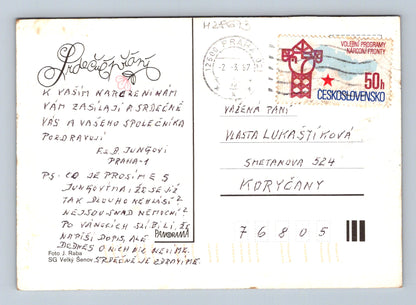 Srdečné přání
K VAŠIM NAROZENINÁM
VÁM ZASÍLAJÍ A SRDEČNĚ
VÁS A VAŠEHO SPOLEČNÍKA
POZDRAVUJÍ
F+B. JUNGOVI
PRAHA-1
PS- CO JE PROSÍME S
JUNGOVÝMA, ŽE SE JIŽ
TAK DLOUHO NEHLÁSÍ?
NEJSOU SNAD NEMOCNÍ?
PO VÁNOCÍCH SLÍBILI, ŽE
NAPÍŠÍ DOPIS, ALE
DODNES O NICH NIC NEVÍME.
SRDEČNĚ JE ZDRAVÍME.
PANORAMA
Foto J. Raba
SG Velký Šenov
PRAHA
VOLEBNÍ PROGRAMY
NÁRODNÍ FRONTY
50h
ČESKOSLOVENSKO
VÁŽENÁ PANÍ
VLASTA LUKAŠTÍKOVÁ
SMETANOVA 524
KORYČANY
76805